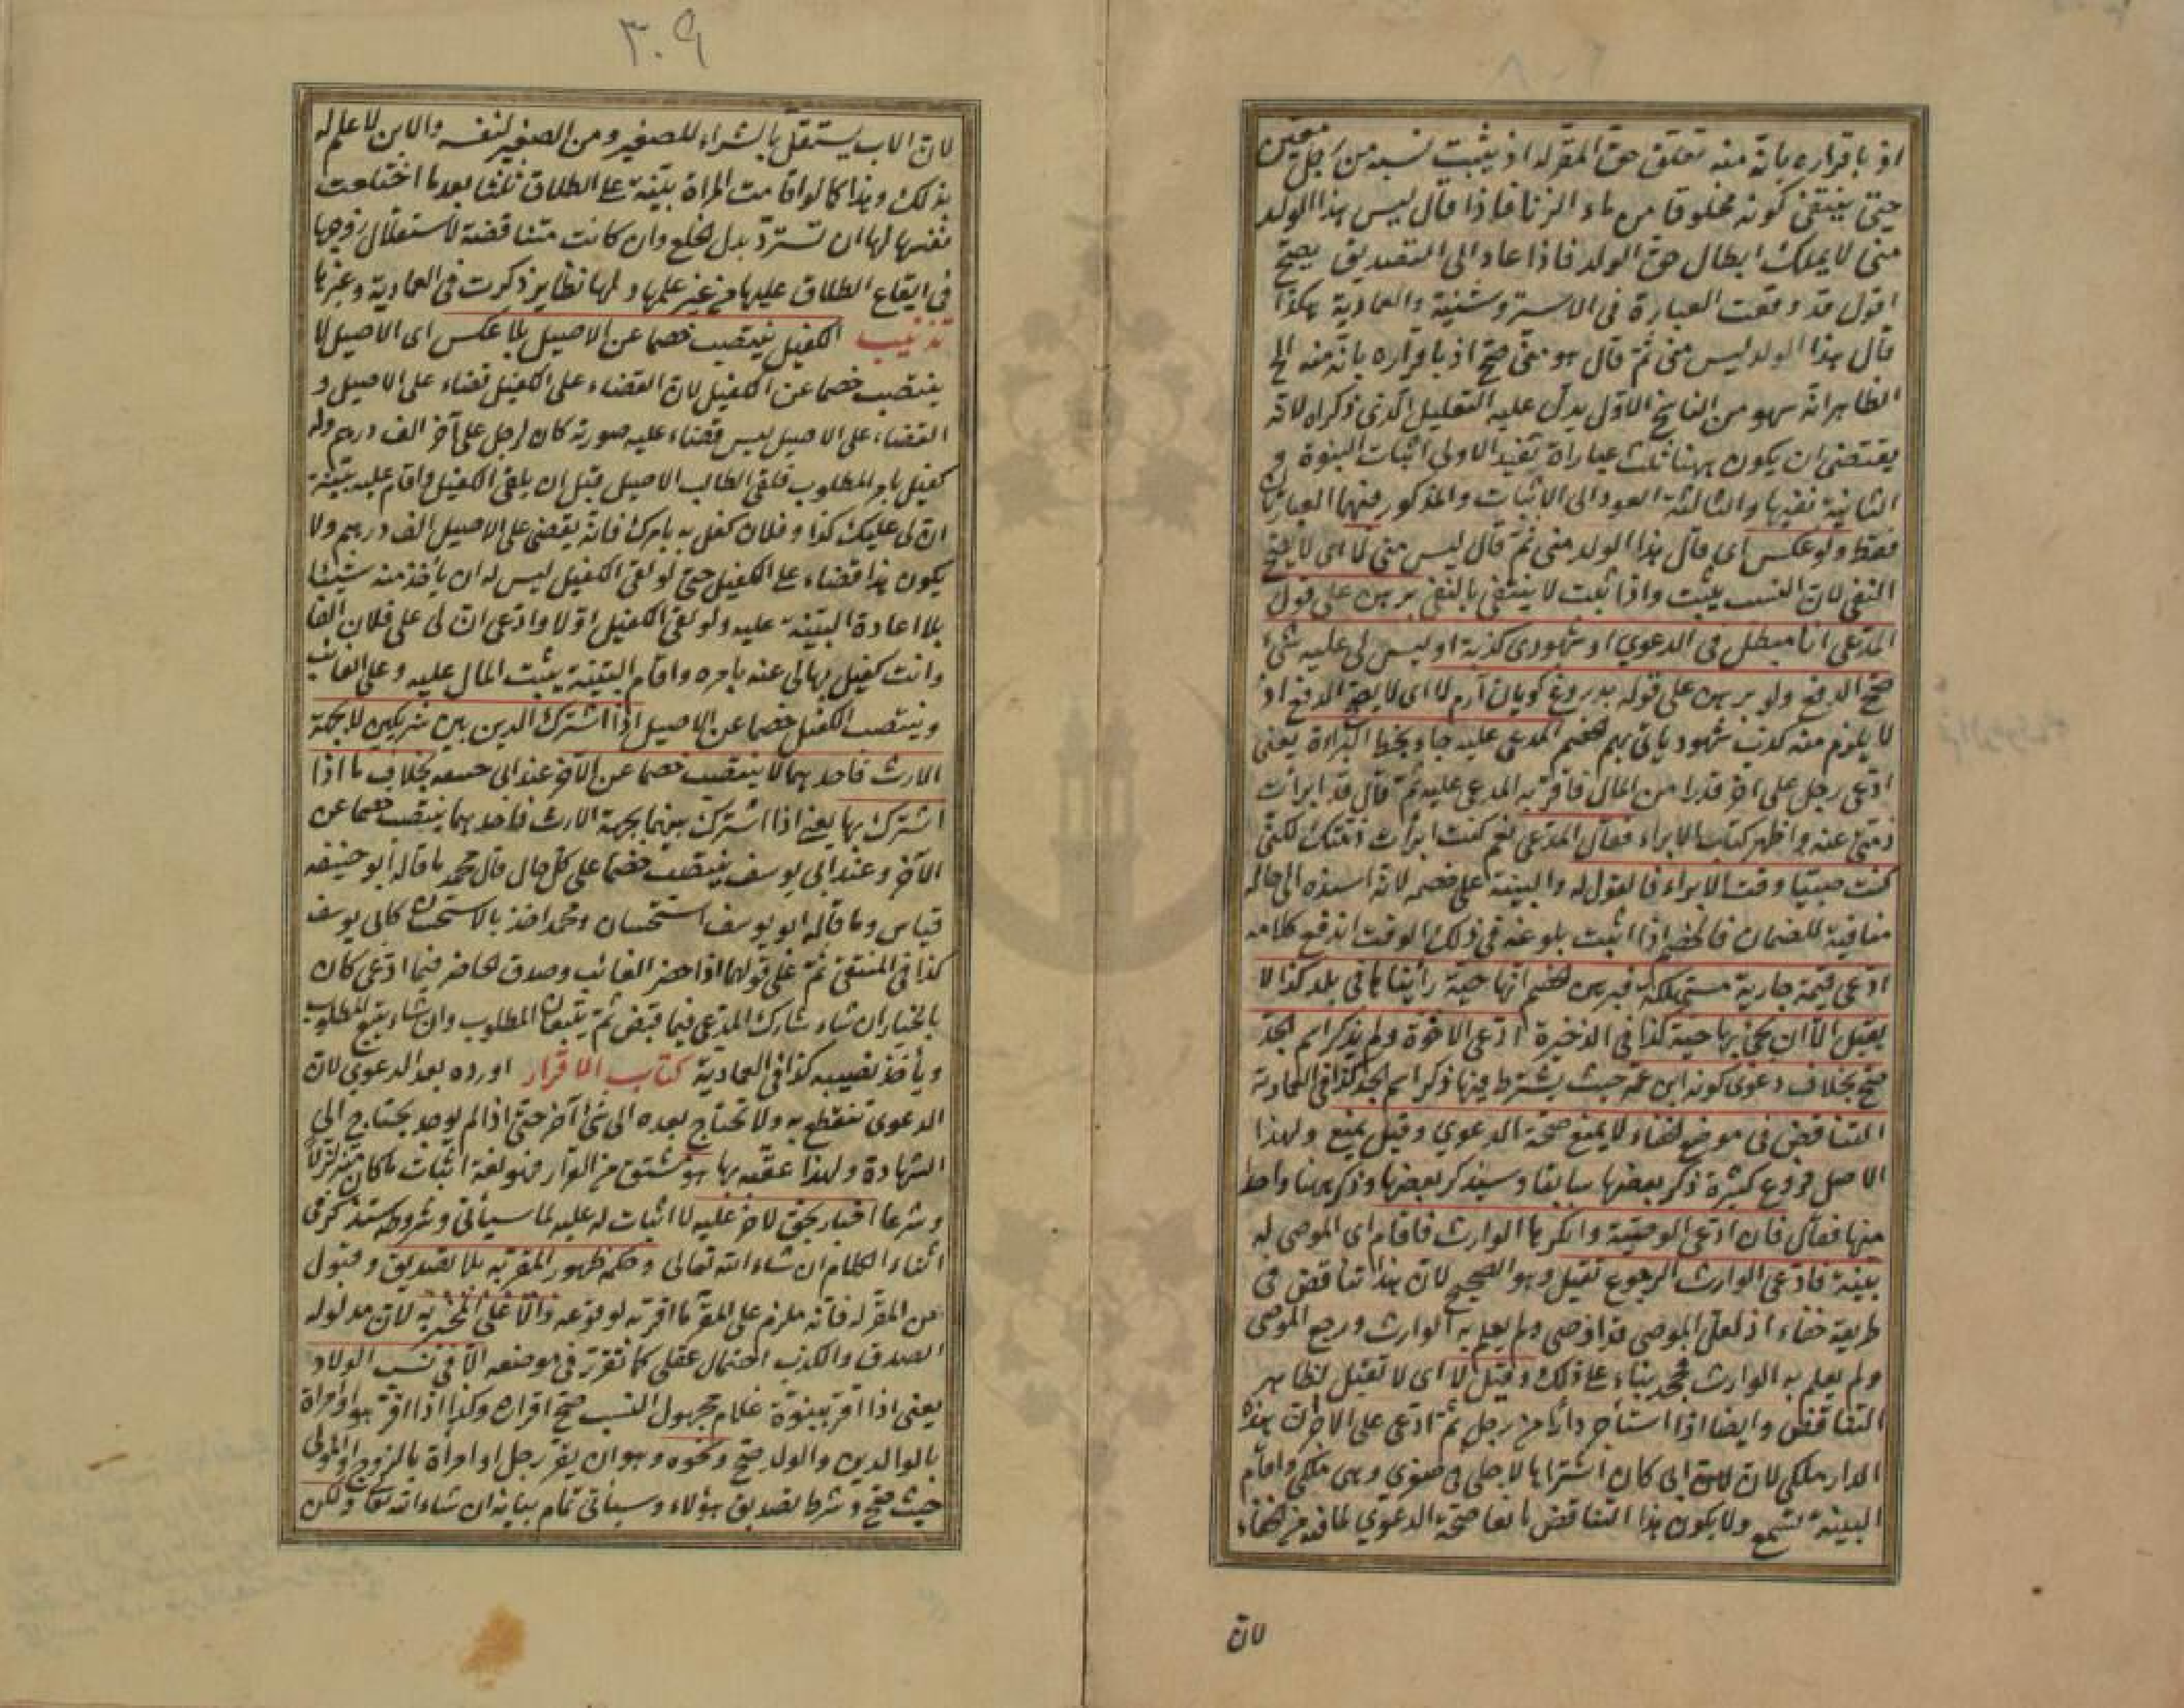 اذ باقراره بانه منه تعلق حق المقر له اذ يثبت نسبه من رجل معين
حتى ينتفى كونه مخلوقا من ماء الزنا فاذا قال ليس هذا الولد
منى لا يملك ابطال حق الولد فاذا عاد الى التصديق يصح
اقول قد وقعت العبارة فى الاستروشنية والعمادية هكذا
قال هذا الولد ليس منى ثم قال هو منى صح اذ باقراره بانه منه الخ
الظاهر انه سهو من الناسخ الاول يدل عليه التعليل الذى ذكراه لانه
يقتضى ان يكون ههنا ثلث عبارات تفيد الاولى اثبات البنوة و
الثانية نفيها والثالثة العود الى الاثبات والمذكور فيهما العبارتان
فقط ولو عكس اى قال هذا الولد منى ثم قال ليس منى لا اى لا يصح
النفى لان النسب يثبت واذا ثبت لا ينتفى بالنفى برهن على قول
المدعى انا مبطل فى الدعوى او شهودى كذبة او ليس لى عليه شئ
صح الدفع ولو برهن على قوله بدروغ كويان آرم لا اى لا يصح الدفع اذ
لا يلزم منه كذب شهود ياتى بهم لخصم المدعى عليه جاء بخط البراءة يعنى
ادعى رجل على آخر قدرا من المال فاقر به المدعى عليه ثم قال قد ابرأت
ذمتى عنه واظهر كتاب الابراء فقال المدعى نعم كنت ابرأت ذمتك لكنى
كنت صبيا وقت الابراء فالقول له والبينة على خصمه لانه اسنده الى حالة
منافية للضمان فالخصم اذا اثبت بلوغه فى ذلك الوقت اندفع كلامه
ادعى قيمة جارية مستهلكة فبرهن الخصم انها حية رأيناها فى بلد كذا لا
يقبل الا ان يجئ بها حية كذا فى الذخيرة ادعى الاخوة ولم يذكر اسم الجد
صح بخلاف دعوى كونه ابن عمه حيث يشترط فيها ذكر اسم الجد كذا فى العمادية
التناقض فى موضع الخفاء لا يمنع صحة الدعوى وقيل يمنع ولهذا
الاصل فروع كثيرة ذكر بعضها سابقا وسيذكر بعضها وذكر ههنا واحدا
منها فقال فان ادعى الوصية وانكرها الوارث فاقام اى الموصى له
بينة فادعى الوارث الرجوع تقبل وهو الصحيح لان هذا تناقض فى
طريقه خفاء اذ لعل الموصى قد اوصى ولم يعلم به الوارث ورجع الموصى
ولم يعلم به الوارث فجحد بناء على ذلك وقيل لا اى لا تقبل لظاهر
التناقض وايضا اذا استأجر دارا من رجل ثم ادعى على الآخر ان هذه
الدار ملكى لان ابى كان اشتراها لاجلى فى صغرى وهى ملكى واقام
البينة تسمع ولا يكون هذا التناقض مانعا صحة الدعوى لما فيه من الخفاء
لان
٣٠٩
لان الاب يستقل بالشراء للصغير ومن الصغير لنفسه والابن لا علم له
بذلك وهذا كما لو اقامت المراة بينة على الطلاق ثلثا بعد ما اختلعت
نفسها لها ان تسترد بدل الخلع وان كانت متناقضة لاستقلال زوجها
فى ايقاع الطلاق عليها من غير علمها ولها نظاير ذكرت فى العمادية وغيرها
تذنيب الكفيل ينتصب خصما عن الاصيل بلا عكس اى الاصيل لا
ينتصب خصما عن الكفيل لان القضاء على الكفيل قضاء على الاصيل و
القضاء على الاصيل ليس قضاء عليه صورته كان لرجل على آخر الف درهم وله
كفيل بامر المطلوب فلقى الطالب الاصيل قبل ان يلقى الكفيل واقام عليه بينة
ان لى عليك كذا وفلان كفل به بامرك فانه يقضى على الاصيل الف درهم ولا
يكون هذا قضاء على الكفيل حتى لو لقى الكفيل ليس له ان يأخذ منه شيئا
بلا اعادة البينة عليه ولو لقى الكفيل اولا وادعى ان لى على فلان الفا
وانت كفيل بها لى عنه بامره واقام البينة يثبت المال عليه وعلى الغائب
وينتصب الكفيل خصما عن الاصيل اذا اشترك الدين بين شريكين لا بجهة
الارث فاحدهما لا ينتصب خصما عن الآخر عند ابى حنيفه بخلاف ما اذا
اشترك بها يعنى اذا اشترك بينهما بجهة الارث فاحدهما ينتصب خصما عن
الآخر وعند ابى يوسف ينتصب خصما على كل حال قال محمد ما قاله ابو حنيفه
قياس وما قاله ابو يوسف استحسان ومحمد اخذ بالاستحسان كابى يوسف
كذا فى المنتقى ثم على قولهما اذا حضر الغائب وصدق الحاضر فيما ادعى كان
بالخيار ان شاء شارك المدعى فيما قبض ثم يتبعان المطلوب وان شاء يتبع المطلوب
ويأخذ نصيبه كذا فى العمادية كتاب الاقرار اورده بعد الدعوى لان
الدعوى تنقطع به ولا تحتاج بعده الى شئ آخر حتى اذا لم يوجد يحتاج الى
الشهادة ولهذا عقبه بها هو مشتق من القرار فهو لغة اثبات ما كان متزلزلا
وشرعا اخبار بحق لآخر عليه لا اثبات له عليه لما سيأتى وشروطه ستذكر فى
اثناء الكلام ان شاء الله تعالى وحكمه ظهور المقر به بلا تصديق وقبول
من المقر له فانه ملزم على المقر ما اقر به لوقوعه دالا على المخبر به لان مدلوله
الصدق والكذب احتمال عقلى كما تقرر فى موضعه الا فى نسب الولاد
يعنى اذا اقر ببنوة غلام مجهول النسب صح اقراره وكذا اذا اقر هو او امراة
بالوالدين والولد صح ونحوه وهو ان يقر رجل او امرأة بالزوج او المولى
حيث صح وشرط تصديق هؤلاء وسيأتى تمام بيانه ان شاء الله تعالى ولكن